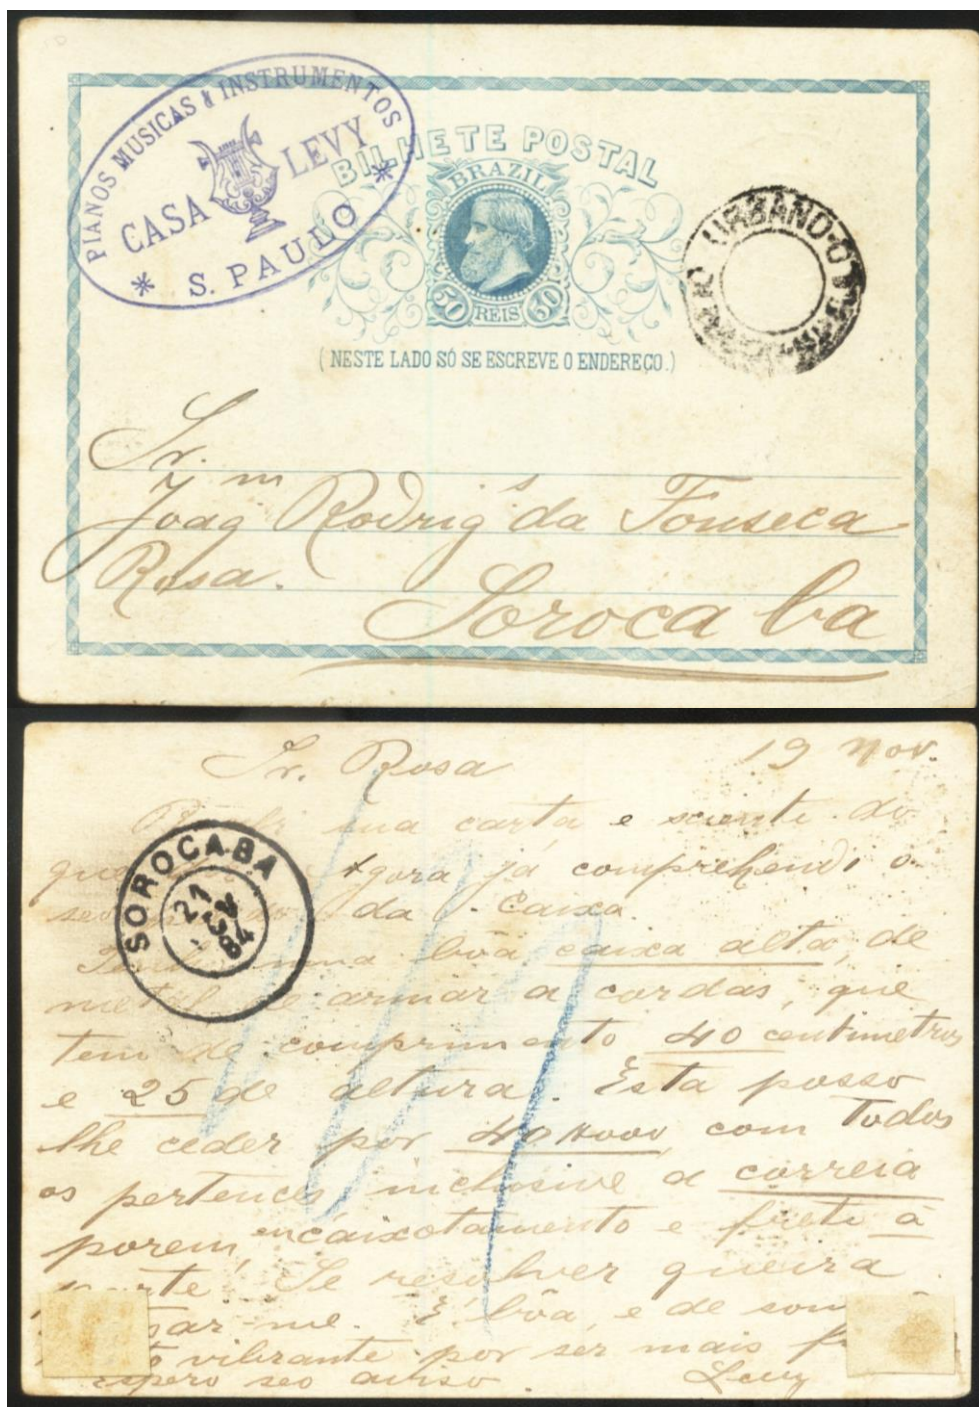 PIANOS MUSICAS & INSTRUMENTOS
CASA LEVY
* S. PAULO *
BILHETE POSTAL
BRAZIL
50 REIS 50
(NESTE LADO SÓ SE ESCREVE O ENDEREÇO.)
URBANO
Sr.
Joaqm Rodrigs da Fonseca
Rosa.
Sorocaba
Sr. Rosa 19 Nov.
sua carta e sciente do
que Agora já comprehendi o
da Caixa.
uma bôa caixa alta, de
metal de armar a cordas, que
tem de comprimento 40 centimetros
e 25 de altura. Esta posso
lhe ceder por 40#000, com todos
os pertences inclusive a correia
porem, encaixotamento e frete à
Se resolver queira
me. É bôa, e de som
vibrante por ser mais
espero seo aviso. Levy
SOROCABA
21
84